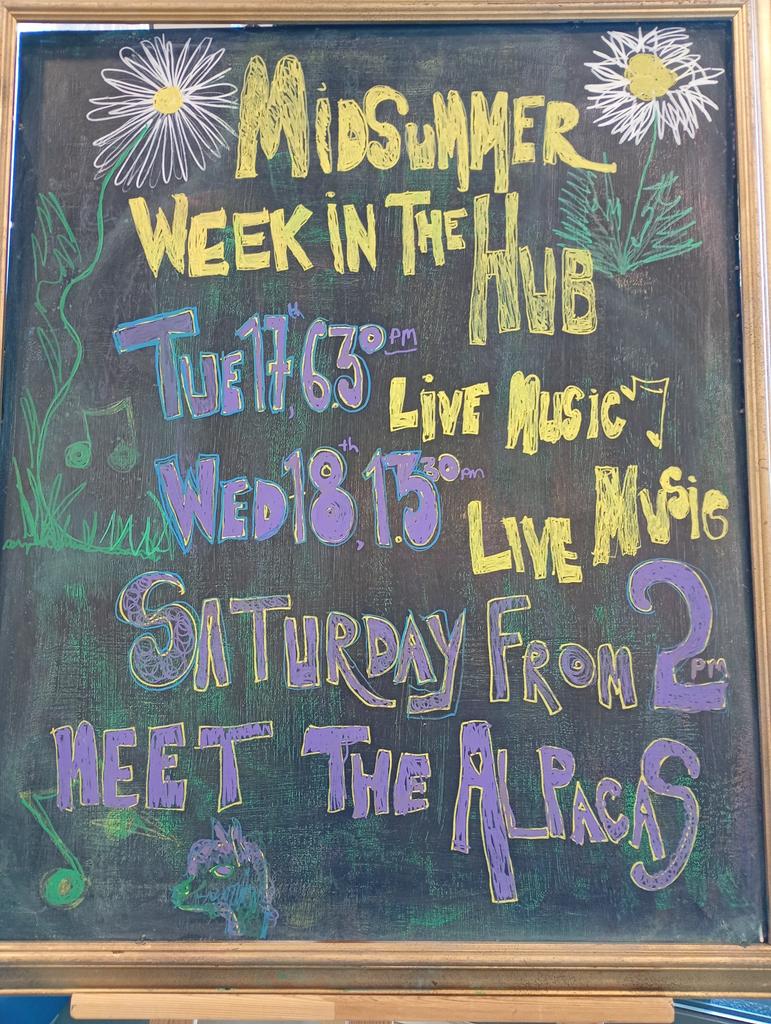 MIDSUMMER
WEEK IN THE HUB
TUE 17th, 6.30 PM
LIVE MUSIC
WED 18th, 13.30 pm
LIVE MUSIC
SATURDAY FROM 2 pm
MEET THE ALPACAS